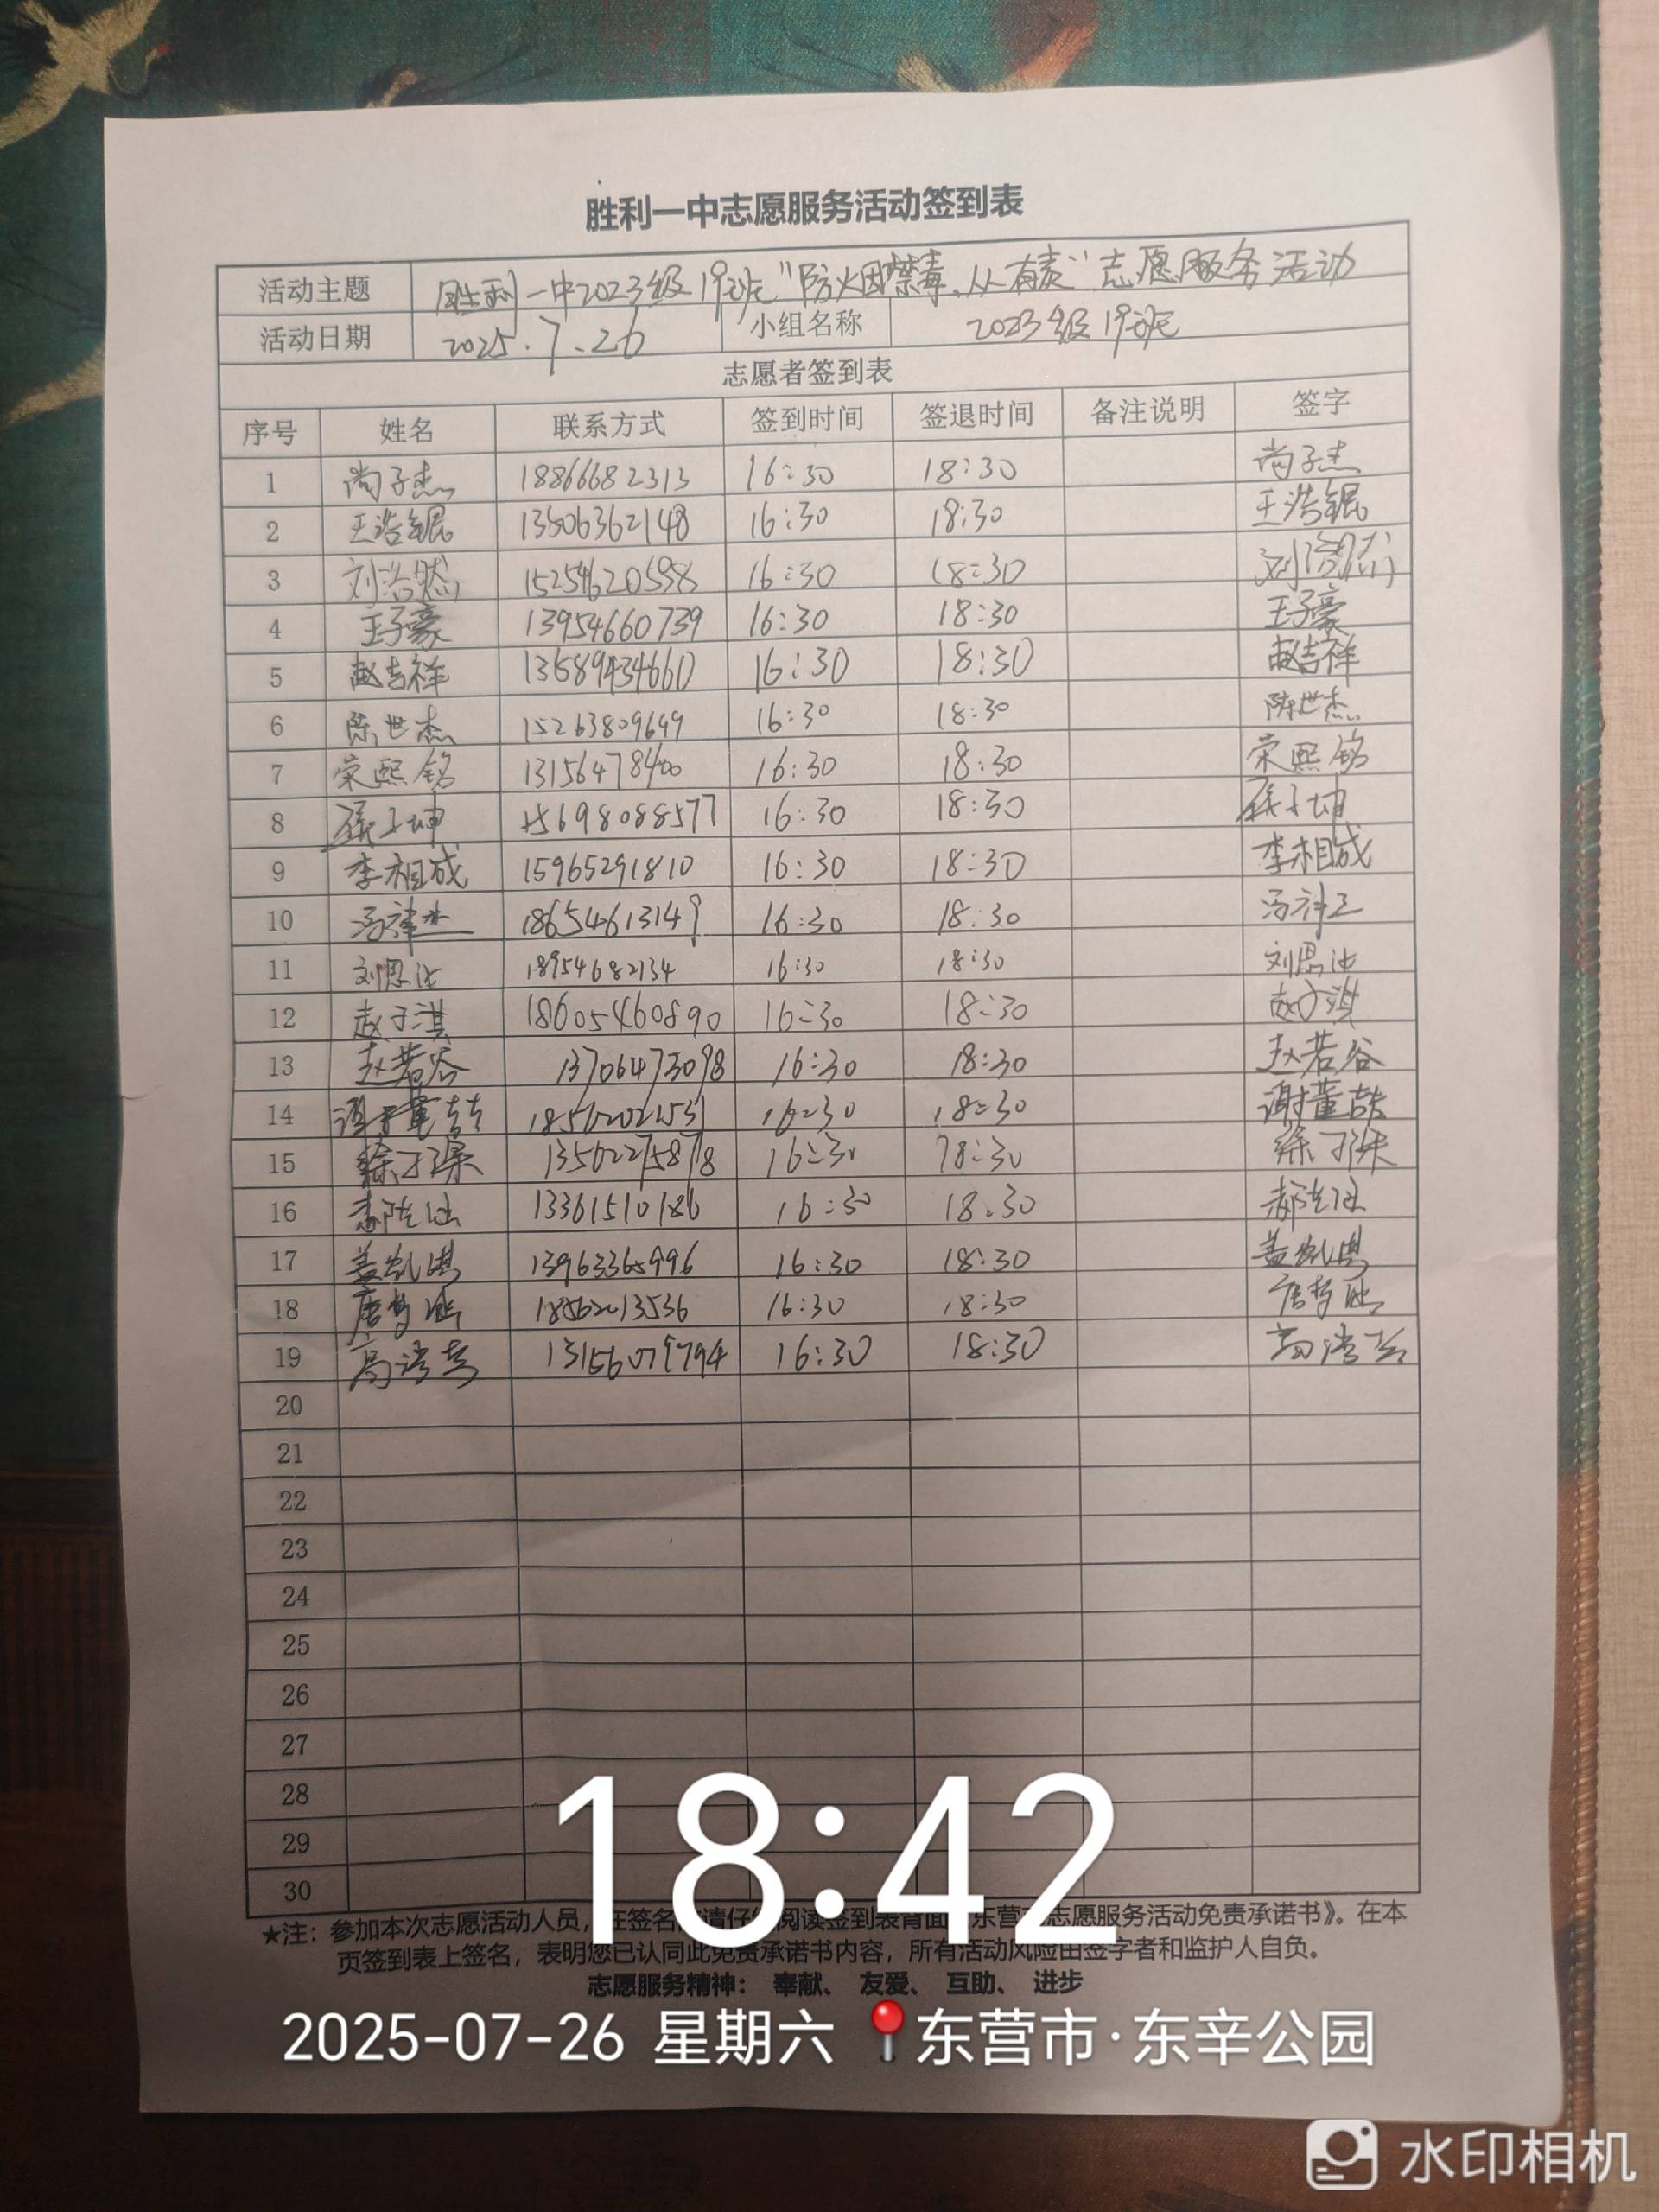 胜利一中志愿服务活动签到表
活动主题 胜利一中2023级19班"防火因禁毒、从有责"志愿服务活动
活动日期 2025.7.26 小组名称 2023级19班
志愿者签到表
序号 姓名 联系方式 签到时间 签退时间 备注说明 签字
1 尚子杰 18866682313 16:30 18:30 尚子杰
2 王浩锟 13506362148 16:30 18:30 王浩锟
3 刘浩然 15254620598 16:30 18:30 刘浩然
4 王子豪 13954660739 16:30 18:30 王子豪
5 赵吉祥 13589434660 16:30 18:30 赵吉祥
6 陈世杰 15263809649 16:30 18:30 陈世杰
7 荣熙铭 13156478400 16:30 18:30 荣熙铭
8 15698088577 16:30 18:30
9 李相成 15965291810 16:30 18:30 李相成
10 18654613149 16:30 18:30
11 18954682134 16:30 18:30
12 赵子淇 18605460890 16:30 18:30 赵子淇
13 赵若谷 13706473098 16:30 18:30 赵若谷
14 谢董喆 16:30 18:30 谢董喆
15 13562275878 16:30 18:30
16 13361510186 16:30 18:30
17 16:30 18:30
18 唐梦 18562013536 16:30 18:30 唐梦
19 13156079794 16:30 18:30
20
21
22
23
24
25
26
27
28
29
30
18:42
★注：参加本次志愿活动人员，在签名 请仔 阅读签到表背面 东营 志愿服务活动免责承诺书》。在本
页签到表上签名，表明您已认同此免责承诺书内容，所有活动风险由签字者和监护人自负。
志愿服务精神： 奉献、 友爱、 互助、 进步
2025-07-26 星期六 东营市·东辛公园
水印相机